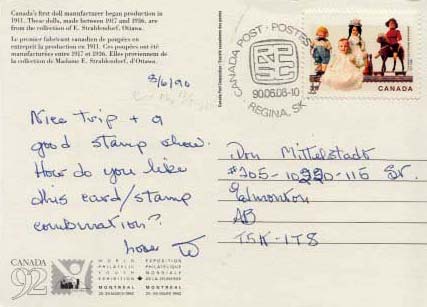 Canada's first doll manufacturer began production in
1911. These dolls, made between 1917 and 1936, are
from the collection of E. Strahlendorf, Ottawa.
Le premier fabricant canadien de poupées en
entreprit la production en 1911. Ces poupées ont été
manufacturées entre 1917 et 1936. Elles proviennent de
la collection de Madame E. Strahlendorf, d'Ottawa.
8/6/90
Nice trip + a
good stamp show.
How do you like
this card/stamp
combination?
love
CANADA
92
WORLD
PHILATELIC
YOUTH
EXHIBITION
MONTREAL
25-29 MARCH 1992
EXPOSITION
PHILATÉLIQUE
MONDIALE
DE LA JEUNESSE
MONTRÉAL
25-29 MARS 1992
CANADA POST · POSTES
90.06.08-10
REGINA, SK
CANADA
Don Mittelstadt
#205-10220-115 St.
Edmonton
AB
T5K-1T8